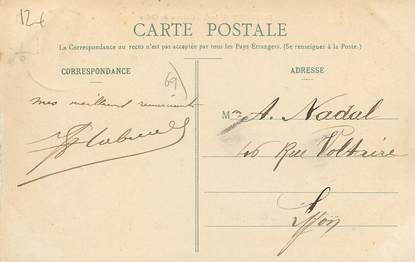 12€
CARTE POSTALE
La Correspondance au recto n'est pas acceptée par tous les Pays Étrangers. (Se renseigner à la Poste.)
CORRESPONDANCE
ADRESSE
69
mes meilleurs remerciements
Mr A. Nadal
46 Rue Voltaire
Lyon